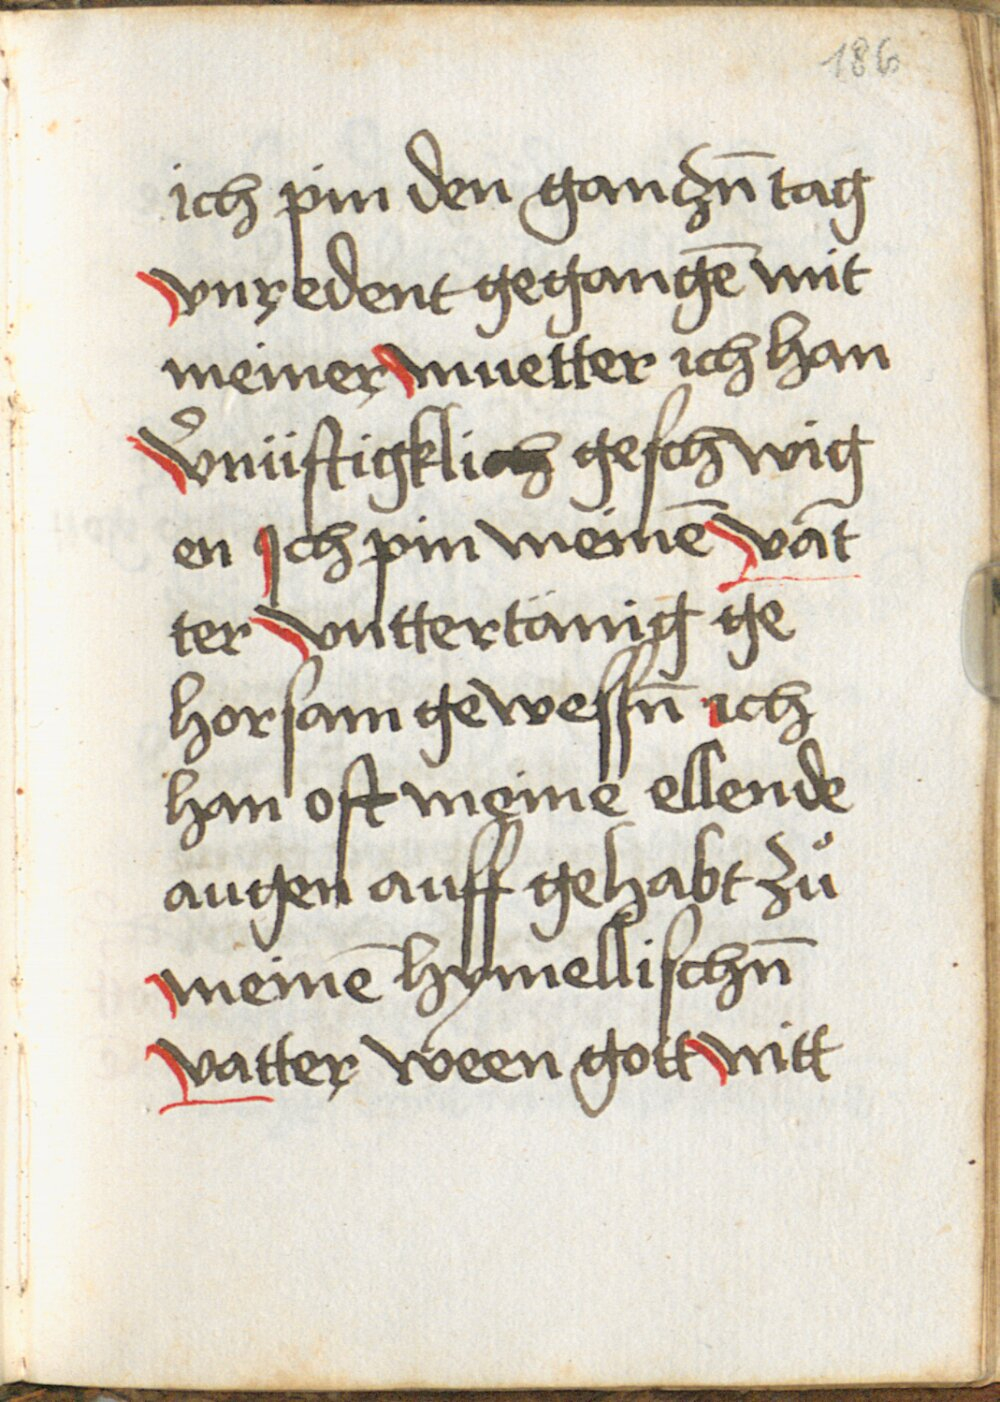 186
ich pin den ganczn̄ tag
vnredent gegangē mit
meiner muetter ich han
v̉nüftigklich geschwig
en Ich pin meinē vāt
ter vnttertänig ge
horsam gewessn̄ ich
han oft meine ellende
augen auff gehabt zů
meinē hymellischn̄
vatter ween gott witt